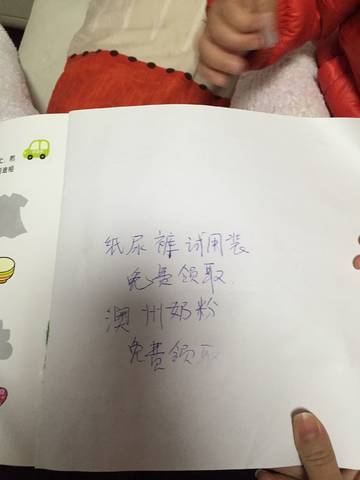 纸尿裤试用装
免费领取
澳州奶粉
免费领取